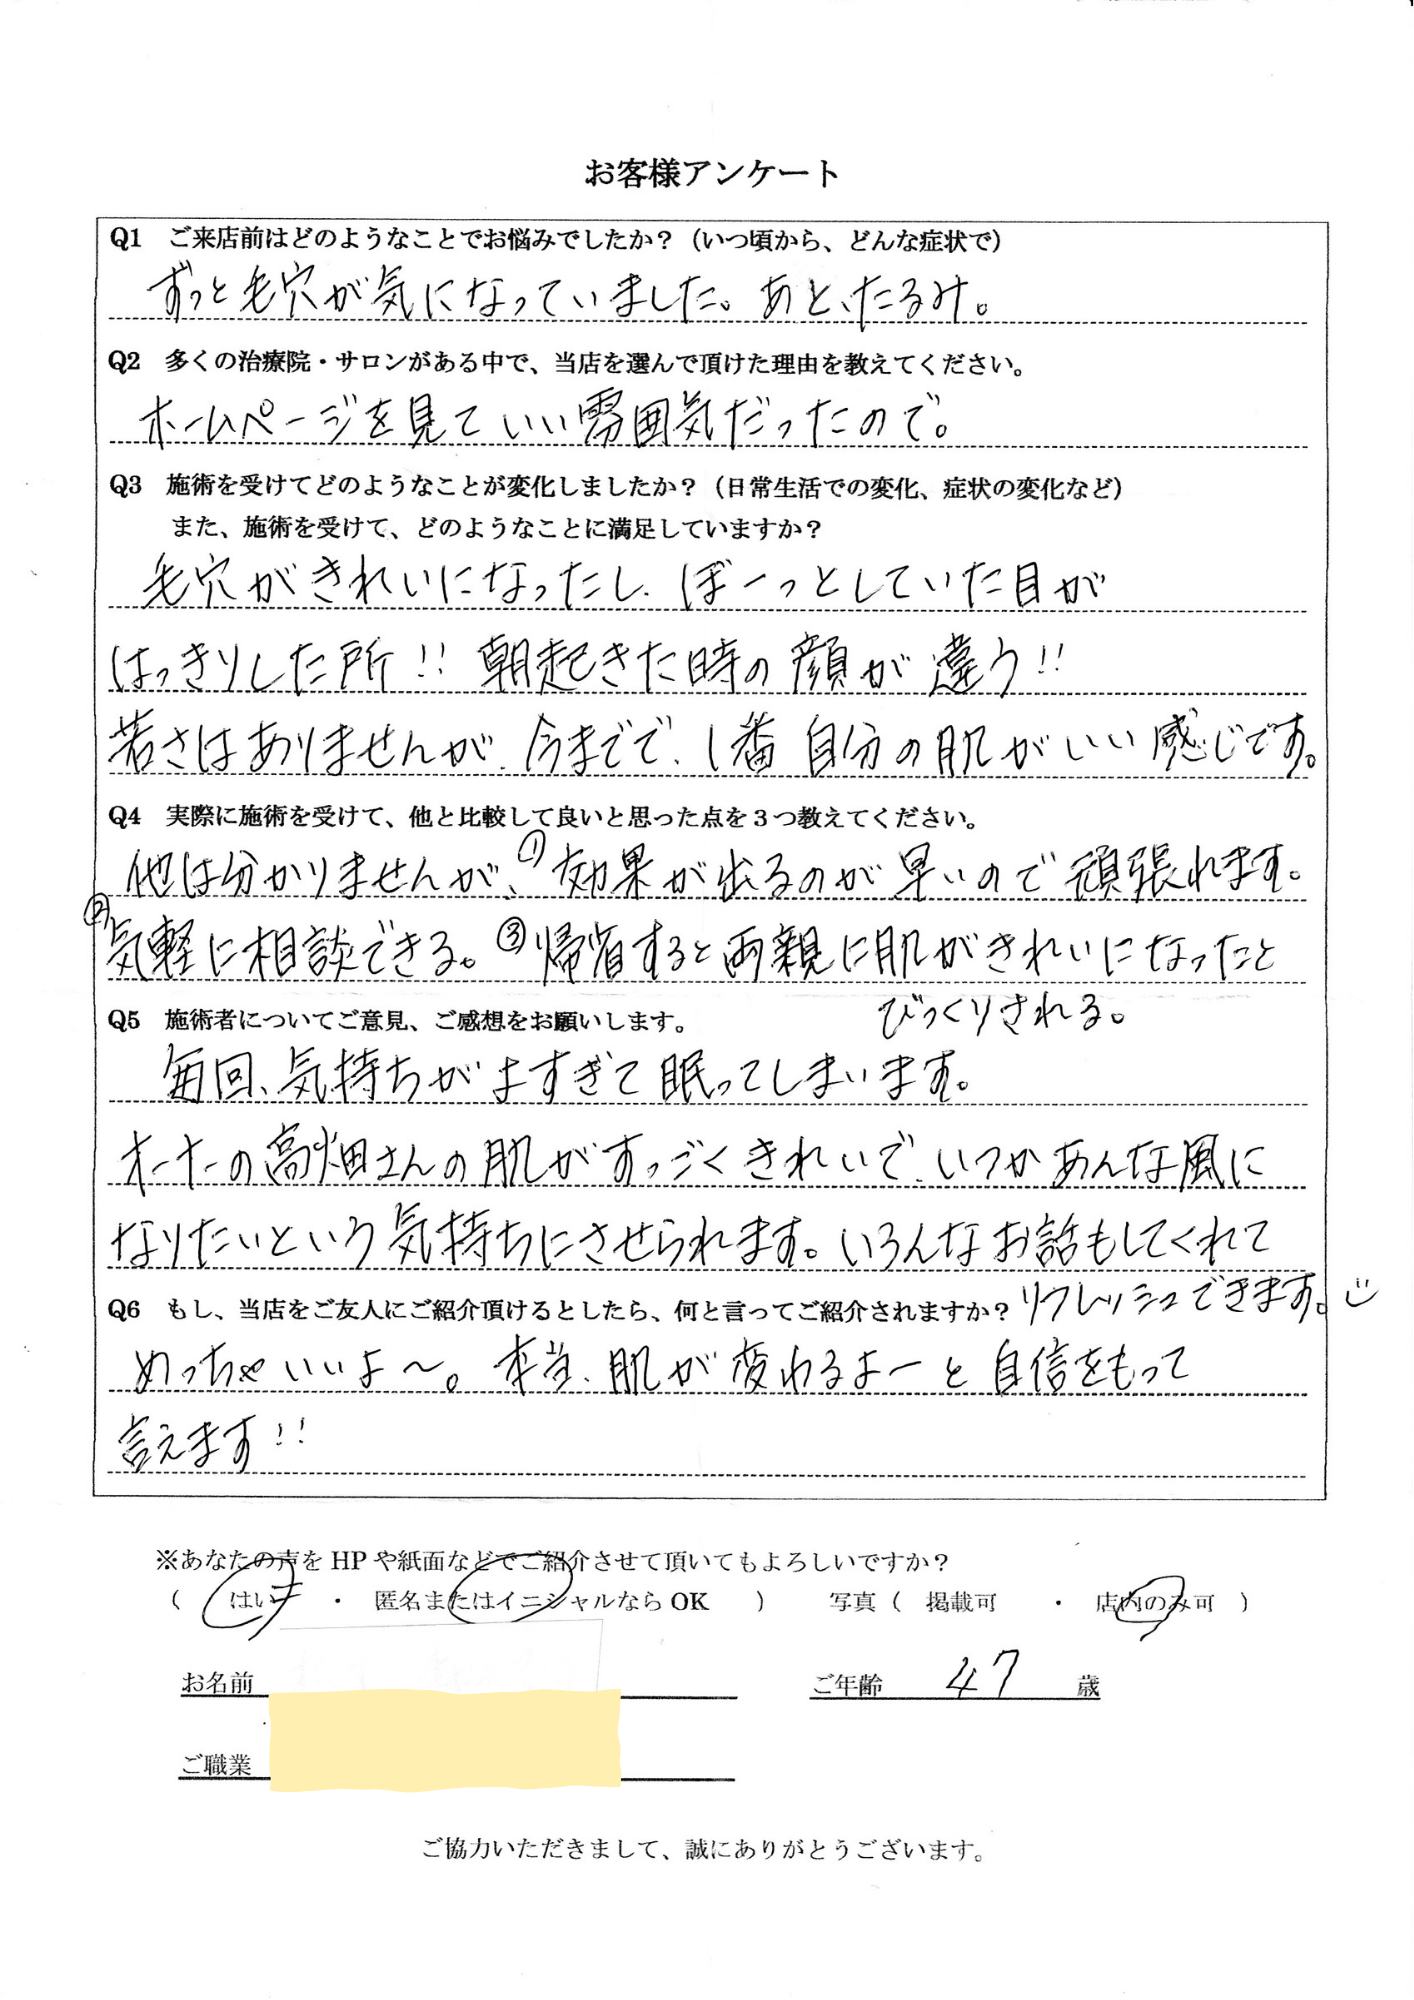 お客様アンケート
Q1 ご来店前はどのようなことでお悩みでしたか？（いつ頃から、どんな症状で）
ずっと毛穴が気になっていました。あと、たるみ。
Q2 多くの治療院・サロンがある中で、当店を選んで頂けた理由を教えてください。
ホームページを見ていい雰囲気だったので。
Q3 施術を受けてどのようなことが変化しましたか？（日常生活での変化、症状の変化など）
また、施術を受けて、どのようなことに満足していますか？
毛穴がきれいになったし、ぼーっとしていた目が
はっきりした所!! 朝起きた時の顔が違う!!
若さはありませんが、今までで、1番 自分の肌がいい感じです。
Q4 実際に施術を受けて、他と比較して良いと思った点を３つ教えてください。
他は分かりませんが、①効果が出るのが早いので頑張れます。
②気軽に相談できる。③帰省すると両親に肌がきれいになったと
びっくりされる。
Q5 施術者についてご意見、ご感想をお願いします。
毎回、気持ちがよすぎて眠ってしまいます。
オーナーの高畑さんの肌がすっごくきれいで、いつかあんな風に
なりたいという気持ちにさせられます。いろんなお話もしてくれて
リフレッシュできます。
Q6 もし、当店をご友人にご紹介頂けるとしたら、何と言ってご紹介されますか？
めっちゃいいよ〜。本当、肌が変わるよーと自信をもって
言えます!!
※あなたの声をHPや紙面などでご紹介させて頂いてもよろしいですか？
（ はい ・ 匿名またはイニシャルならOK ） 写真（ 掲載可 ・ 店内のみ可 ）
お名前 ご年齢 47 歳
ご職業
ご協力いただきまして、誠にありがとうございます。